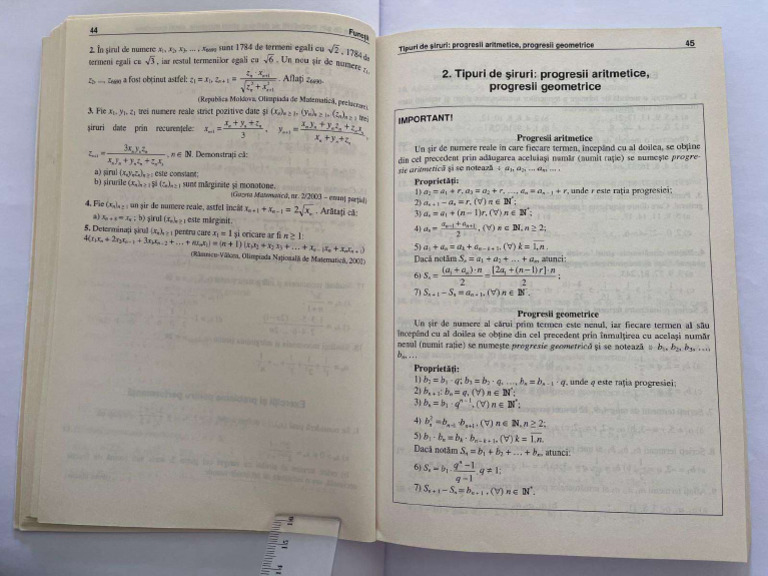 44
Funcții
2. În șirul de numere x₁, x₂, x₃, ... , x₆₆₉₀ sunt 1784 de termeni egali cu √2, 1784 de
termeni egali cu √3, iar restul termenilor egali cu √6. Un nou șir de numere z₁,
z₂, ..., z₆₆₉₀ a fost obținut astfel: z₁ = x₁, zₙ₊₁ = (zₙ · xₙ₊₁)/√(zₙ² + xₙ₊₁²). Aflați z₆₆₉₀.
(Republica Moldova, Olimpiada de Matematică, prelucrare)
3. Fie x₁, y₁, z₁ trei numere reale strict pozitive date și (xₙ)ₙ≥₁, (yₙ)ₙ≥₁, (zₙ)ₙ≥₁ trei
șiruri date prin recurențele: xₙ₊₁ = (xₙ + yₙ + zₙ)/3, yₙ₊₁ = (xₙyₙ + yₙzₙ + zₙxₙ)/(xₙ + yₙ + zₙ),
zₙ₊₁ = 3xₙyₙzₙ/(xₙyₙ + yₙzₙ + zₙxₙ), n ∈ ℕ. Demonstrați că:
a) șirul (xₙyₙzₙ)ₙ≥₁ este constant;
b) șirurile (xₙ)ₙ≥₁ și (zₙ)ₙ≥₁ sunt mărginite și monotone.
(Gazeta Matematică, nr. 2/2003 – enunț parțial)
4. Fie (xₙ)ₙ≥₁ un șir de numere reale, astfel încât xₙ₊₁ + xₙ₋₁ = 2√xₙ. Arătați că:
a) xₙ₊₈ = xₙ; b) șirul (xₙ)ₙ≥₁ este mărginit.
5. Determinați șirul (xₙ)ₙ≥₁ pentru care x₁ = 1 și oricare ar fi n ≥ 1:
4(x₁xₙ + 2x₂xₙ₋₁ + 3x₃xₙ₋₂ + ... + nxₙx₁) = (n + 1) (x₁x₂ + x₂x₃ + ... + xₙ₋₁xₙ + xₙxₙ₊₁)
(Râmnicu-Vâlcea, Olimpiada Națională de Matematică, 2002)
Tipuri de șiruri: progresii aritmetice, progresii geometrice
45
2. Tipuri de șiruri: progresii aritmetice,
progresii geometrice
IMPORTANT!
Progresii aritmetice
Un șir de numere reale în care fiecare termen, începând cu al doilea, se obține
din cel precedent prin adăugarea aceluiași număr (numit rație) se numește progre-
sie aritmetică și se notează ÷ a₁, a₂, ... aₙ, ... .
Proprietăți:
1) a₂ = a₁ + r, a₃ = a₂ + r, ..., aₙ = aₙ₋₁ + r, unde r este rația progresiei;
2) aₙ₊₁ – aₙ = r, (∀) n ∈ ℕ*;
3) aₙ = a₁ + (n – 1)r, (∀) n ∈ ℕ*;
4) aₙ = (aₙ₋₁ + aₙ₊₁)/2, (∀) n ∈ ℕ, n ≥ 2;
5) a₁ + aₙ = aₖ + aₙ₋ₖ₊₁, (∀) k = 1,n.
Dacă notăm Sₙ = a₁ + a₂ + ... + aₙ, atunci:
6) Sₙ = (a₁ + aₙ)·n/2 = [2a₁ + (n–1)r]·n/2;
7) Sₙ₊₁ – Sₙ = aₙ₊₁, (∀) n ∈ ℕ*.
Progresii geometrice
Un șir de numere al cărui prim termen este nenul, iar fiecare termen al său
începînd cu al doilea se obține din cel precedent prin înmulțirea cu același număr
nenul (numit rație) se numește progresie geometrică și se notează ÷ b₁, b₂, b₃, ...,
bₙ, ...
Proprietăți:
1) b₂ = b₁ · q; b₃ = b₂ · q, ..., bₙ = bₙ₋₁ · q, unde q este rația progresiei;
2) bₙ₊₁ : bₙ = q, (∀) n ∈ ℕ*;
3) bₙ = b₁ · qⁿ⁻¹, (∀) n ∈ ℕ*;
4) bₙ² = bₙ₋₁ · bₙ₊₁, (∀) n ∈ ℕ, n ≥ 2;
5) b₁ · bₙ = bₖ · bₙ₋ₖ₊₁, (∀) k = 1,n.
Dacă notăm Sₙ = b₁ + b₂ + ... + bₙ, atunci:
6) Sₙ = b₁ · (qⁿ – 1)/(q – 1) q ≠ 1;
7) Sₙ₊₁ – Sₙ = bₙ₊₁, (∀) n ∈ ℕ*.